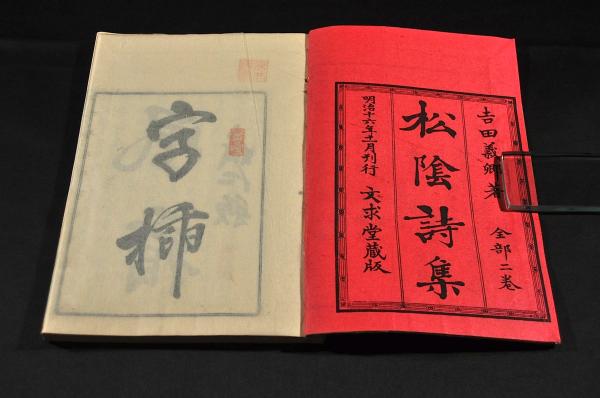 吉田義卿著　全部二巻
松陰詩集
明治十六年十一月刊行　文求堂蔵版
字挿